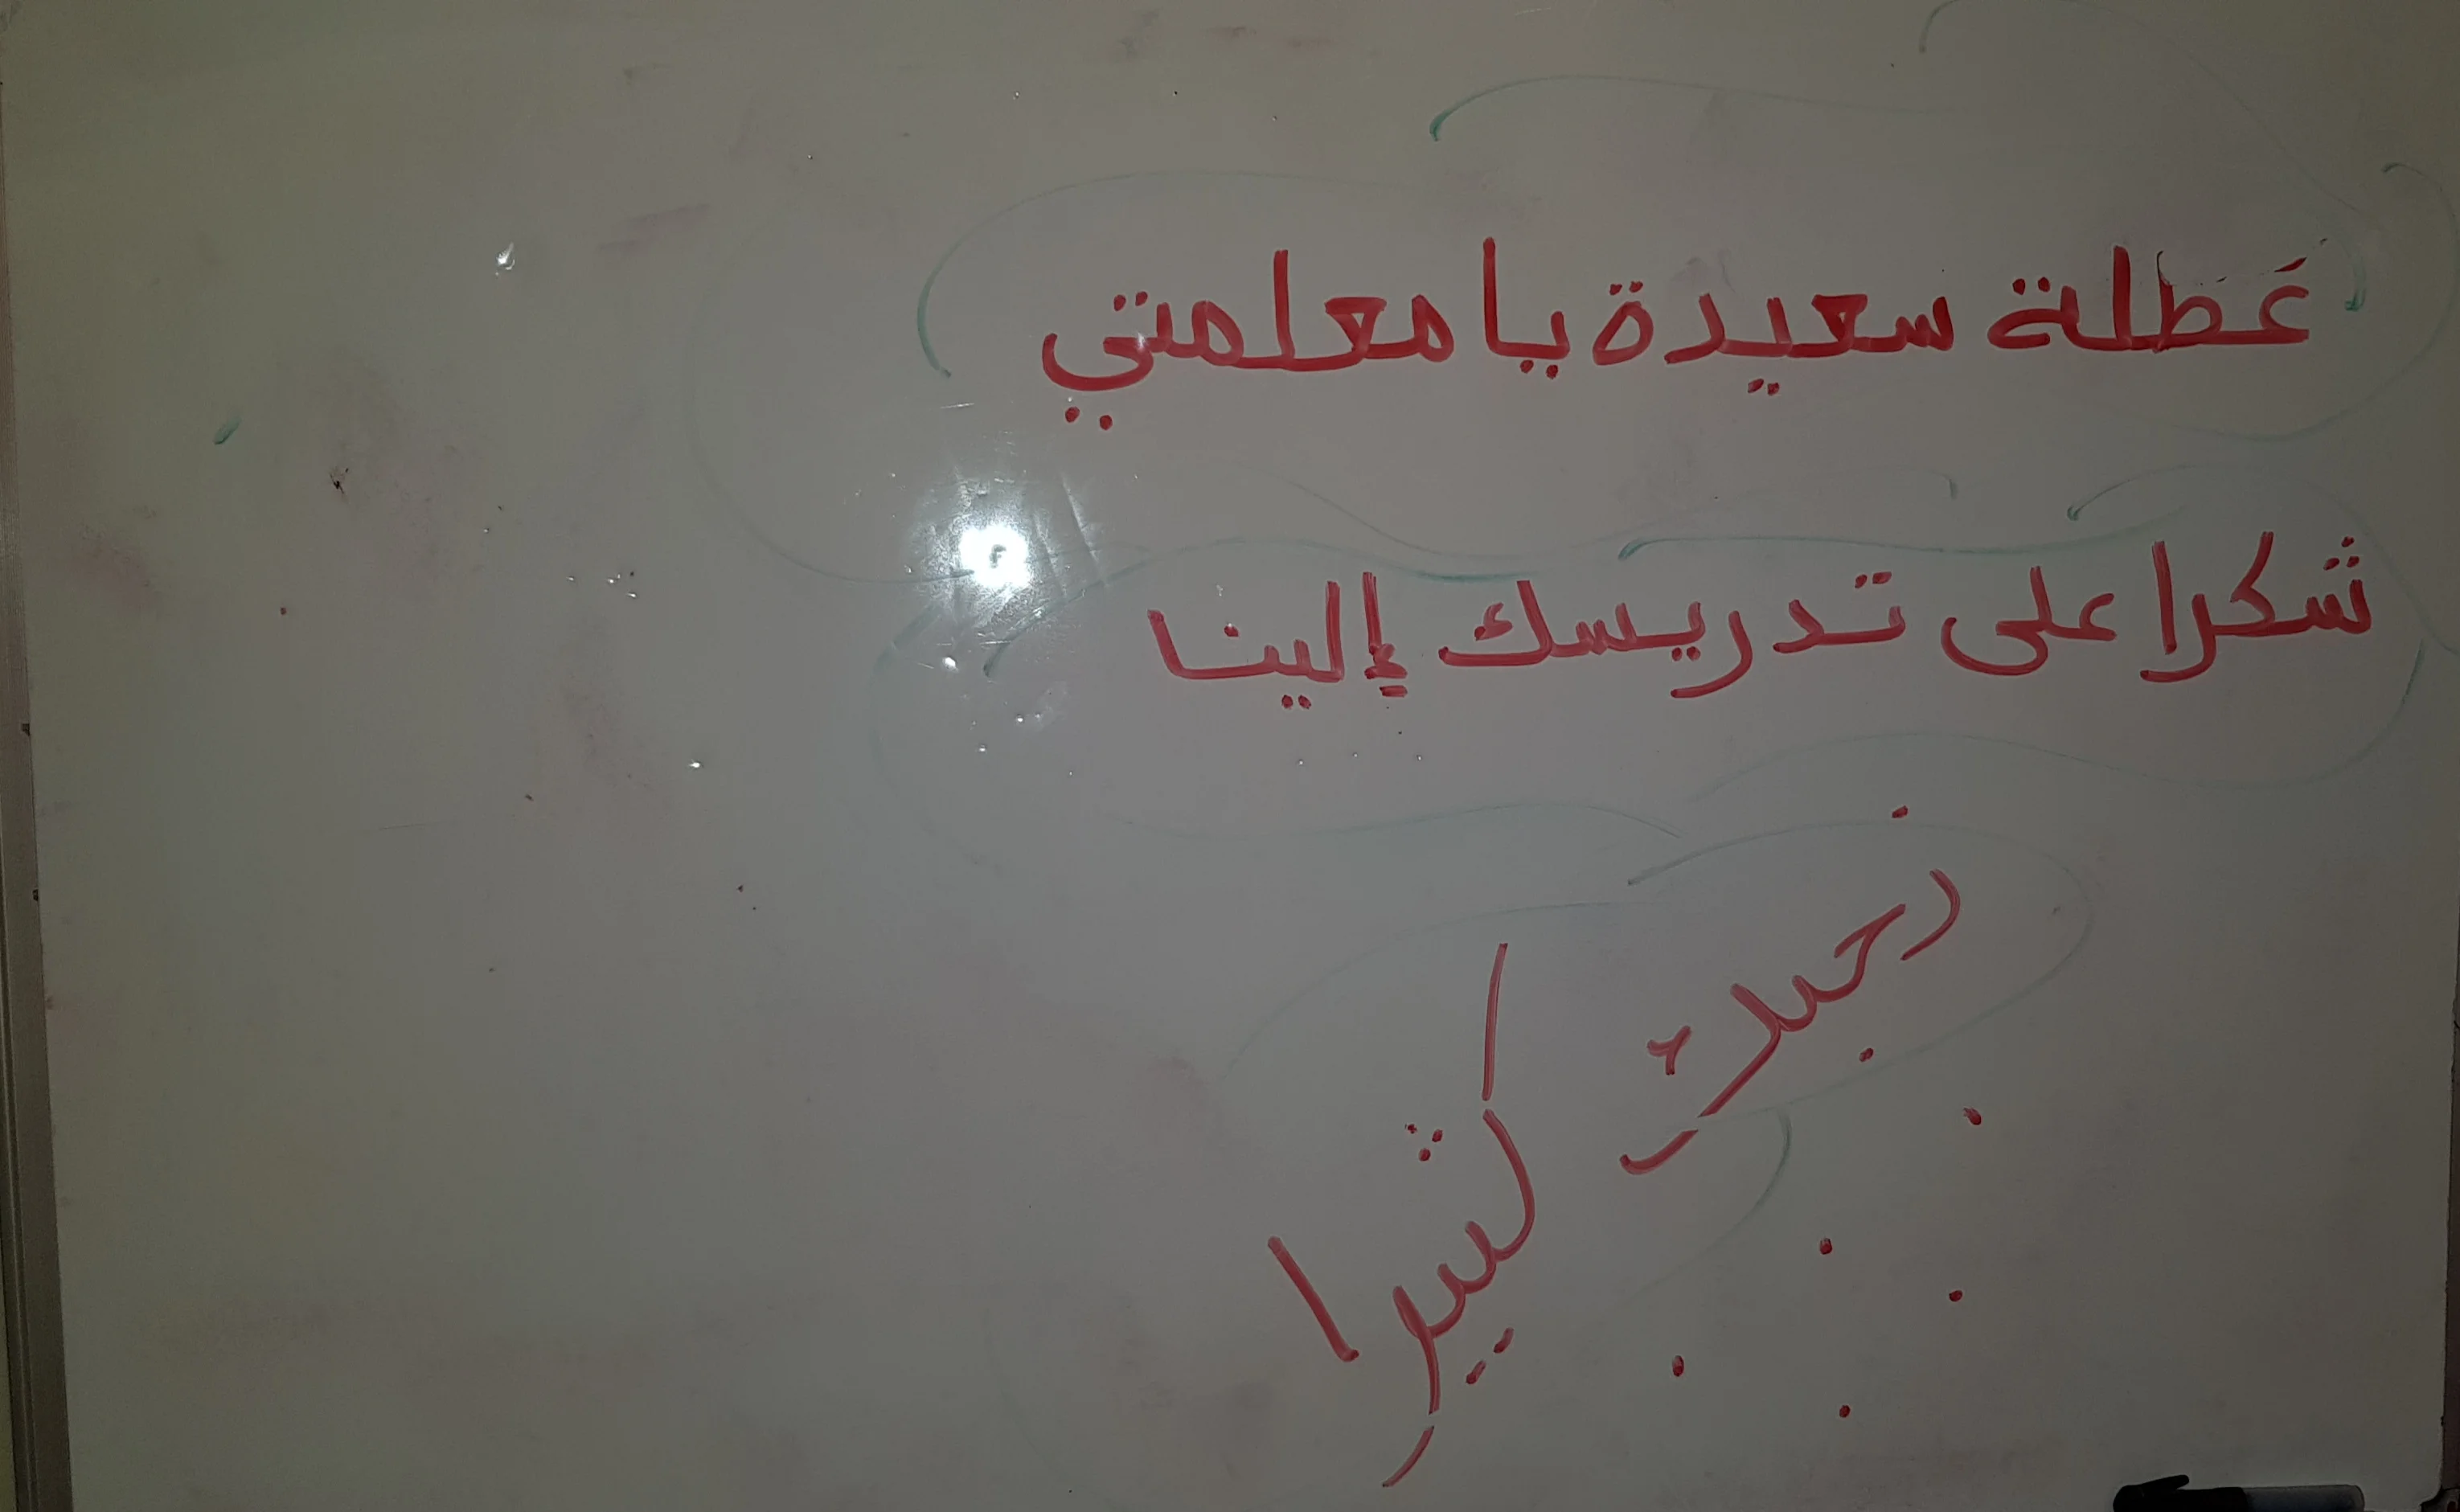 عَطلة سعيدة يا معلمتي
شكرا على تدريسك إلينا
نحبك كثيرا